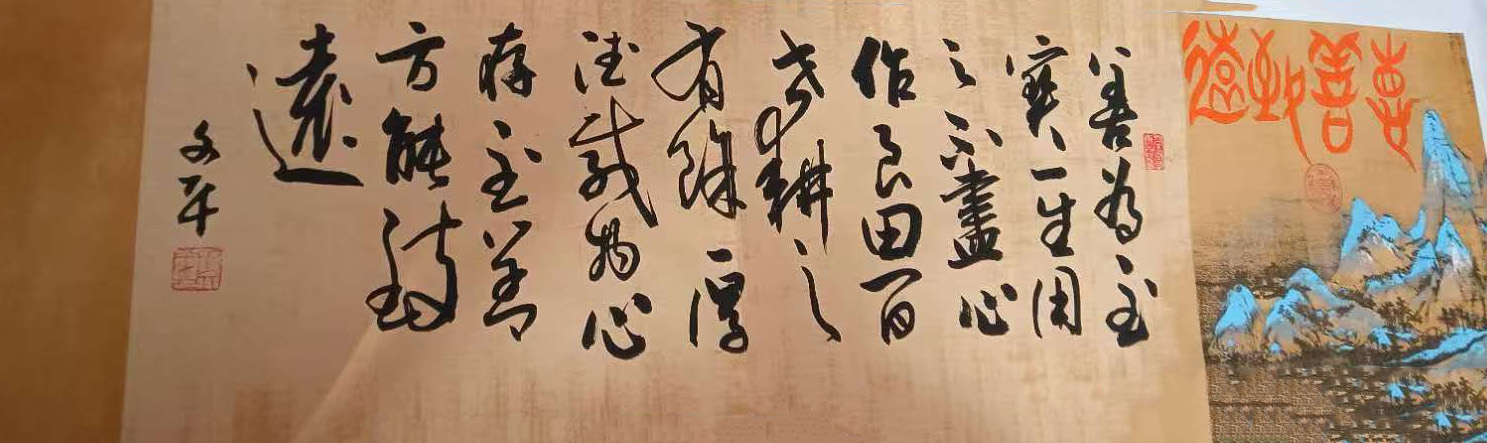 善致遠
善為至
寶一生用
之不盡心
作良田百
世耕之
有餘厚
德載物心
存至善
方能致
遠
文